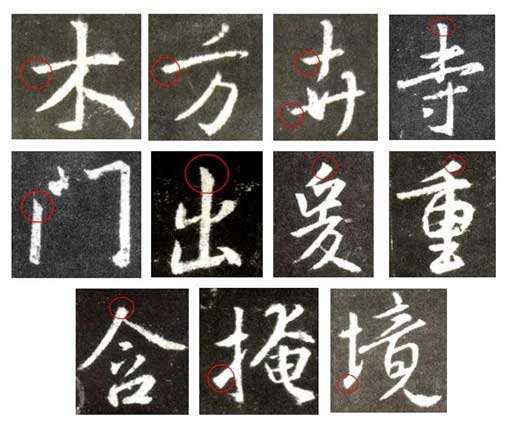 木方卉寺
門出爰重
含掩境